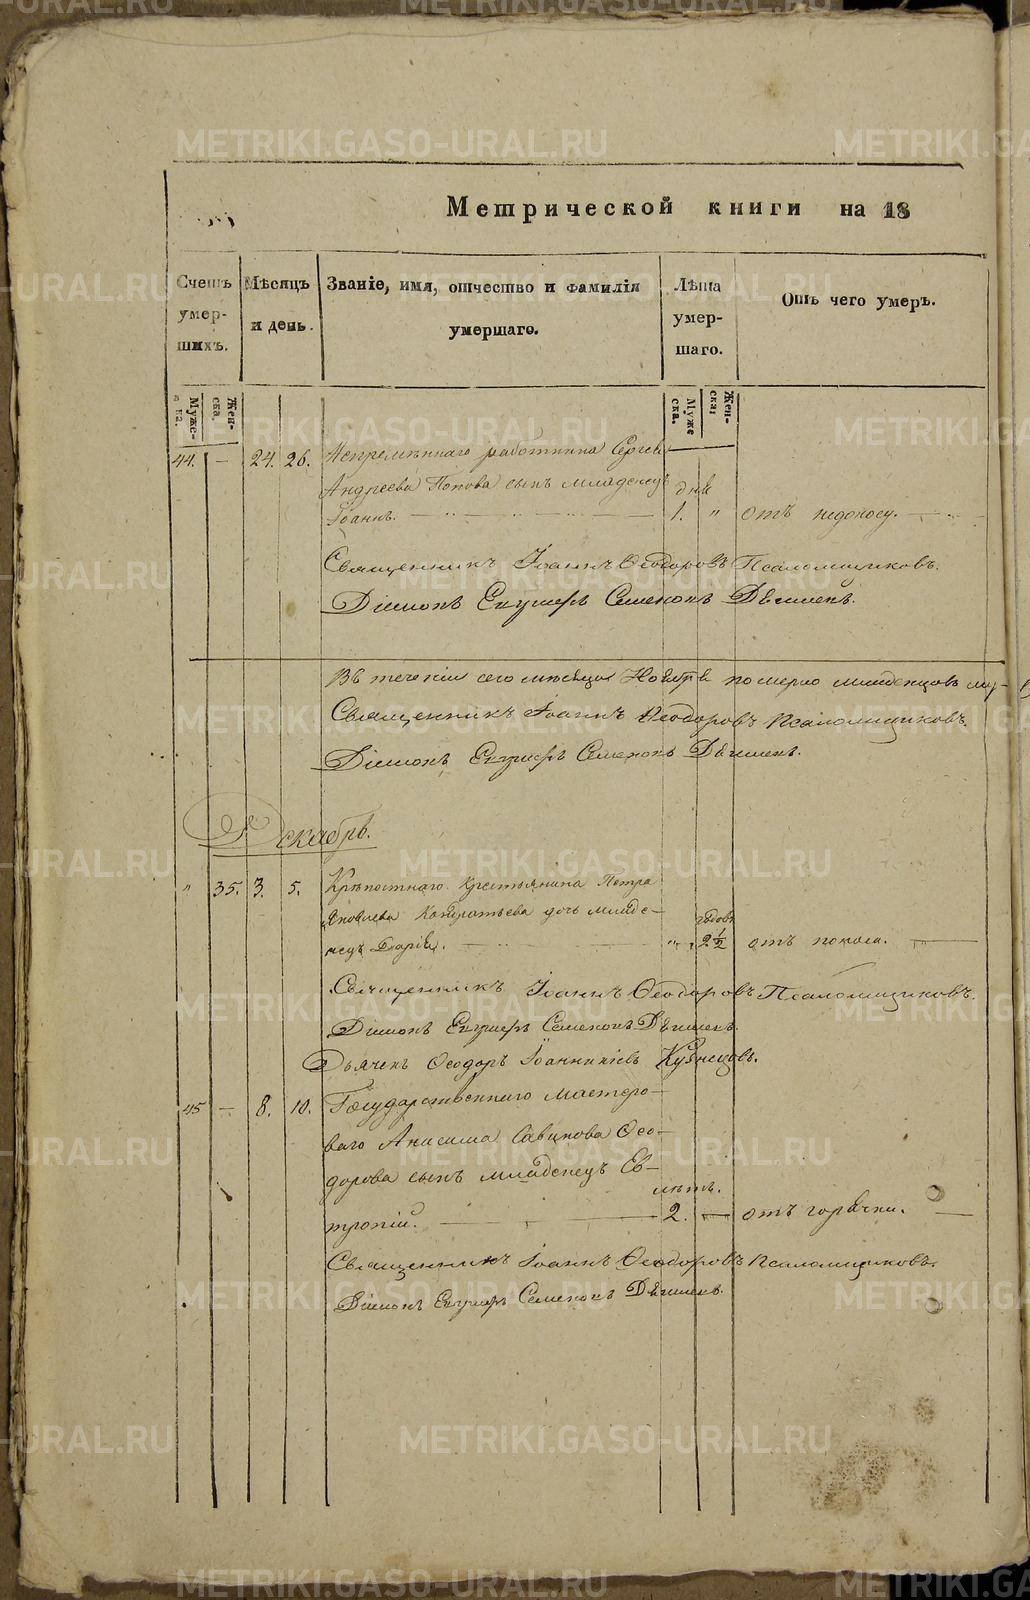 Метрической книги на 18
Счетъ умер-шихъ.
Мѣсяцъ и день.
Званіе, имя, отчество и фамилія умершаго.
Лѣта умер-шаго.
Отъ чего умеръ.
Муже-ска.
Жен-ска.
Муже-ска.
Жен-ска.
44. — 24. 26. Непремѣннаго работника Сергѣя
Андреева Попова сынъ младенецъ дня
Іоаннъ. — 1. " отъ недоносу. —
Священникъ Іоаннъ Ѳеодоровъ Псаломщиковъ.
Діаконъ Семенонъ
Въ теченіи сего мѣсяца Ноября померло младенцовъ
Священникъ Іоаннъ Ѳеодоровъ Псаломщиковъ
Діаконъ Семенонъ
Декабрь.
" 35. 3. 5. Крѣпостнаго крестьянина Петра
Яковлева Кондратьева дочь младе- годовъ
нецъ Дарія. — " 2 1/2 отъ поноса. —
Священникъ Іоаннъ Ѳеодоровъ Псаломщиковъ.
Діаконъ Семенонъ
Дьячекъ Ѳеодоръ Іоанникіевъ Кузнецовъ.
45 — 8. 10. Государственнаго мастеро-
ваго Анисима Савинова Ѳео-
дорова сынъ младенецъ Ев- лѣтъ.
тропій. — 2. — отъ горячки. —
Священникъ Іоаннъ Ѳеодоровъ Псаломщиковъ.
Діаконъ Семенонъ
METRIKI.GASO-URAL.RU